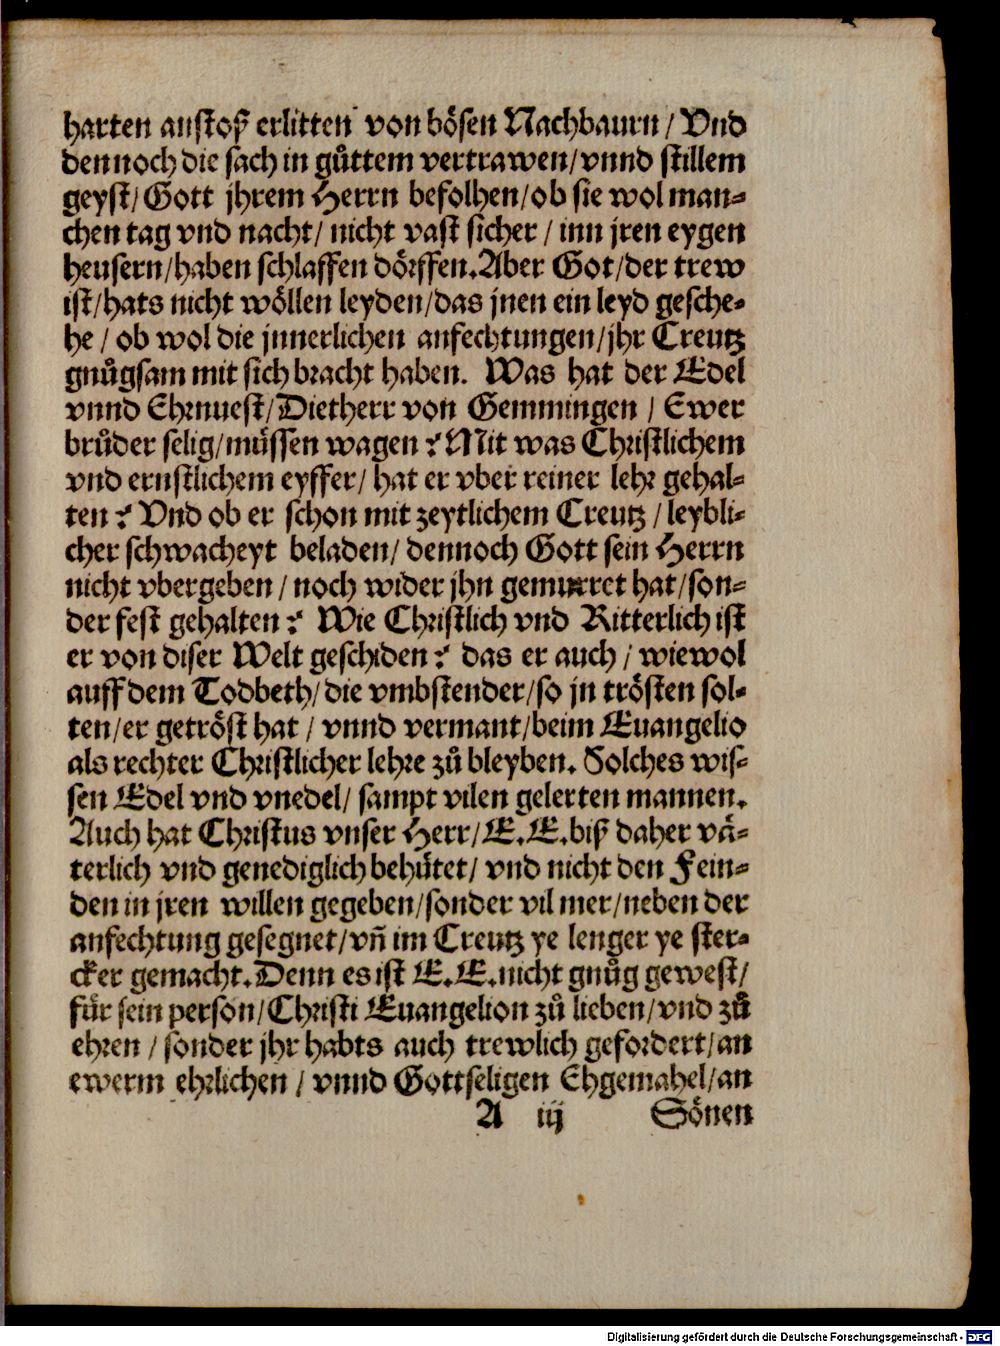 harten anstoß erlitten von bösen Nachbaurn / Vnd
dennoch die sach in gůttem vertrawen/vnnd stillem
geyst/Gott jhrem Herrn befolhen/ob sie wol man-
chen tag vnd nacht/ nicht vast sicher / inn jren eygen
heusern/haben schlaffen dörffen.Aber Got/der trew
ist/hats nicht wöllen leyden/das jnen ein leyd gesche-
he / ob wol die jnnerlichen anfechtungen/jhr Creutz
gnůgsam mit sich bracht haben. Was hat der Edel
vnnd Ehrnuest/Dietherr von Gemmingen / Ewer
brůder selig/müssen wagen ? Mit was Christlichem
vnd ernstlichem eyffer/ hat er vber reiner lehr gehal-
ten ? Vnd ob er schon mit zeytlichem Creutz / leybli-
cher schwacheyt beladen/ dennoch Gott sein Herrn
nicht vbergeben / noch wider jhn gemurret hat/son-
der fest gehalten ? Wie Christlich vnd Ritterlich ist
er von diser Welt geschiden ? das er auch / wiewol
auff dem Todbeth/die vmbstender/so jn trösten sol-
ten/er getröst hat / vnnd vermant/beim Euangelio
als rechter Christlicher lehre zů bleyben. Solches wis-
sen Edel vnd vnedel/ sampt vilen gelerten mannen.
Auch hat Christus vnser Herr/E.E.biß daher vä-
terlich vnd genediglich behütet/ vnd nicht den Fein-
den in jren willen gegeben/sonder vil mer/neben der
anfechtung gesegnet/vñ im Creutz ye lenger ye ster-
cker gemacht.Denn es ist E.E.nicht gnůg gewest/
für sein person/Christi Euangelion zů lieben/vnd zů
ehren / sonder jhr habts auch trewlich gefordert/an
ewerm ehrlichen / vnnd Gottseligen Ehgemahel/an
A iij Sönen
Digitalisierung gefördert durch die Deutsche Forschungsgemeinschaft - DFG